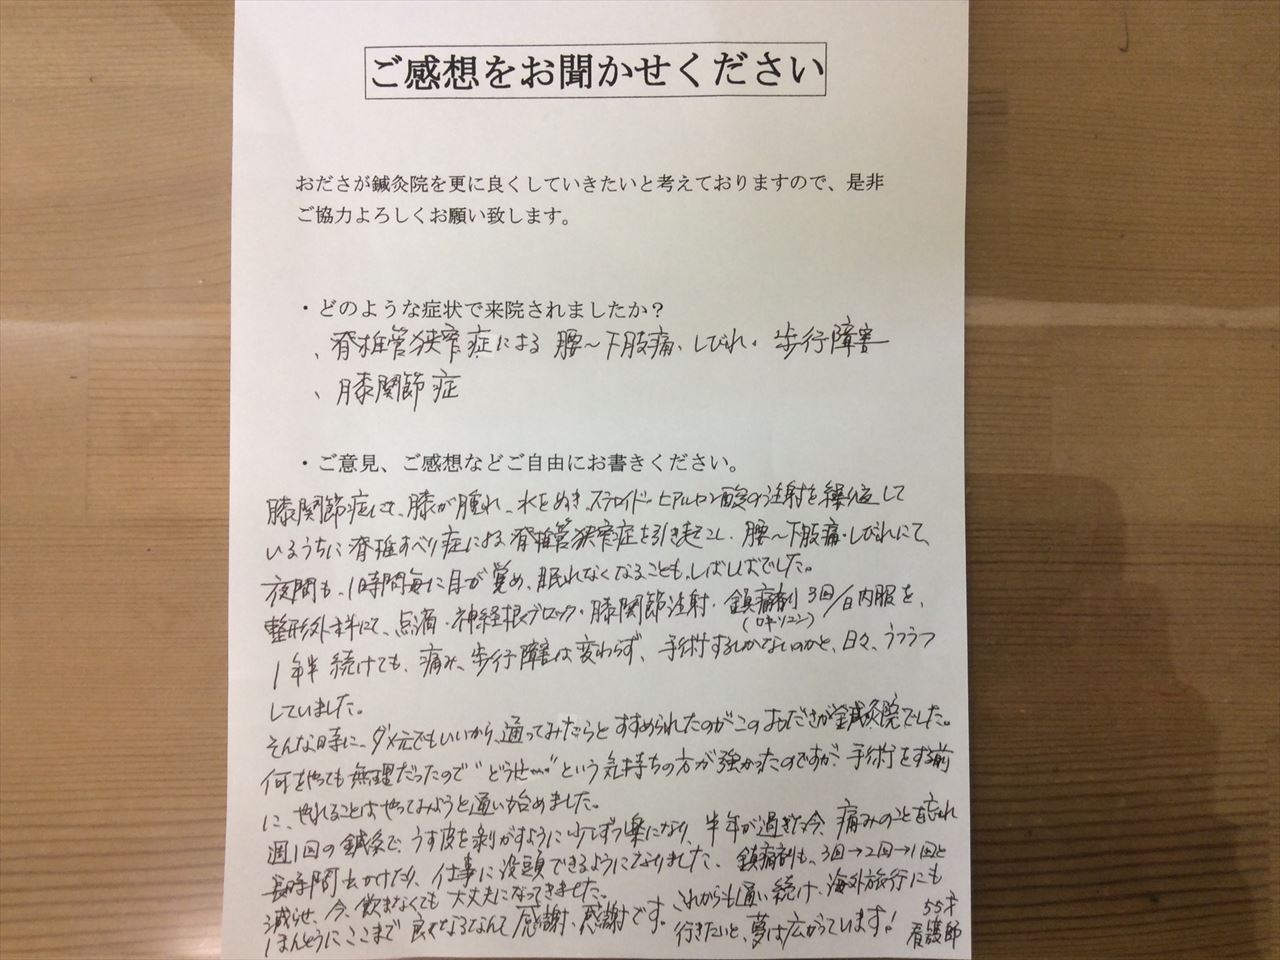 ご感想をお聞かせください
おださが鍼灸院を更に良くしていきたいと考えておりますので、是非
ご協力よろしくお願い致します。
・どのような症状で来院されましたか？
、脊椎管狭窄症による 腰〜下肢痛、しびれ・歩行障害
、膝関節症
・ご意見、ご感想などご自由にお書きください。
膝関節症にて、膝が腫れ、水をぬき、ステロイド・ヒアルロン酸の注射を繰り返して
いるうちに脊椎すべり症による脊椎管狭窄症を引き起こし、腰〜下肢痛・しびれにて、
夜間も、1時間毎に目が覚め、眠れなくなることも、しばしばでした。
整形外科にて、点滴・神経根ブロック・膝関節注射・鎮痛剤 3回/日内服を、
(ロキソニン)
1年半続けても、痛み、歩行障害は変わらず、手術するしかないのかと、日々、うつうつ
していました。
そんな時に、ダメ元でもいいから、通ってみたらとすすめられたのがこのおださが鍼灸院でした。
何をやっても無理だったので“どうせ……”という気持ちの方が強かったのですが、手術をする前
に、やれることはやってみようと通い始めました。
週1回の鍼灸で、うす皮を剥がすように少しずつ楽になり、半年が過ぎた今、痛みのことを忘れ
長時間出かけたり、仕事に没頭できるようになりました。鎮痛剤も、3回→2回→1回と
減らせ、今、飲まなくても大丈夫になってきました。
ほんとうにここまで良くなるなんて感謝、感謝です。これからも通い続け、海外旅行にも
行きたいと、夢は広がっています！
55才
看護師